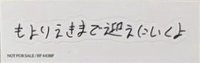 もよりえきまで迎えにいくよ
NOT FOR SALE / RP #408P